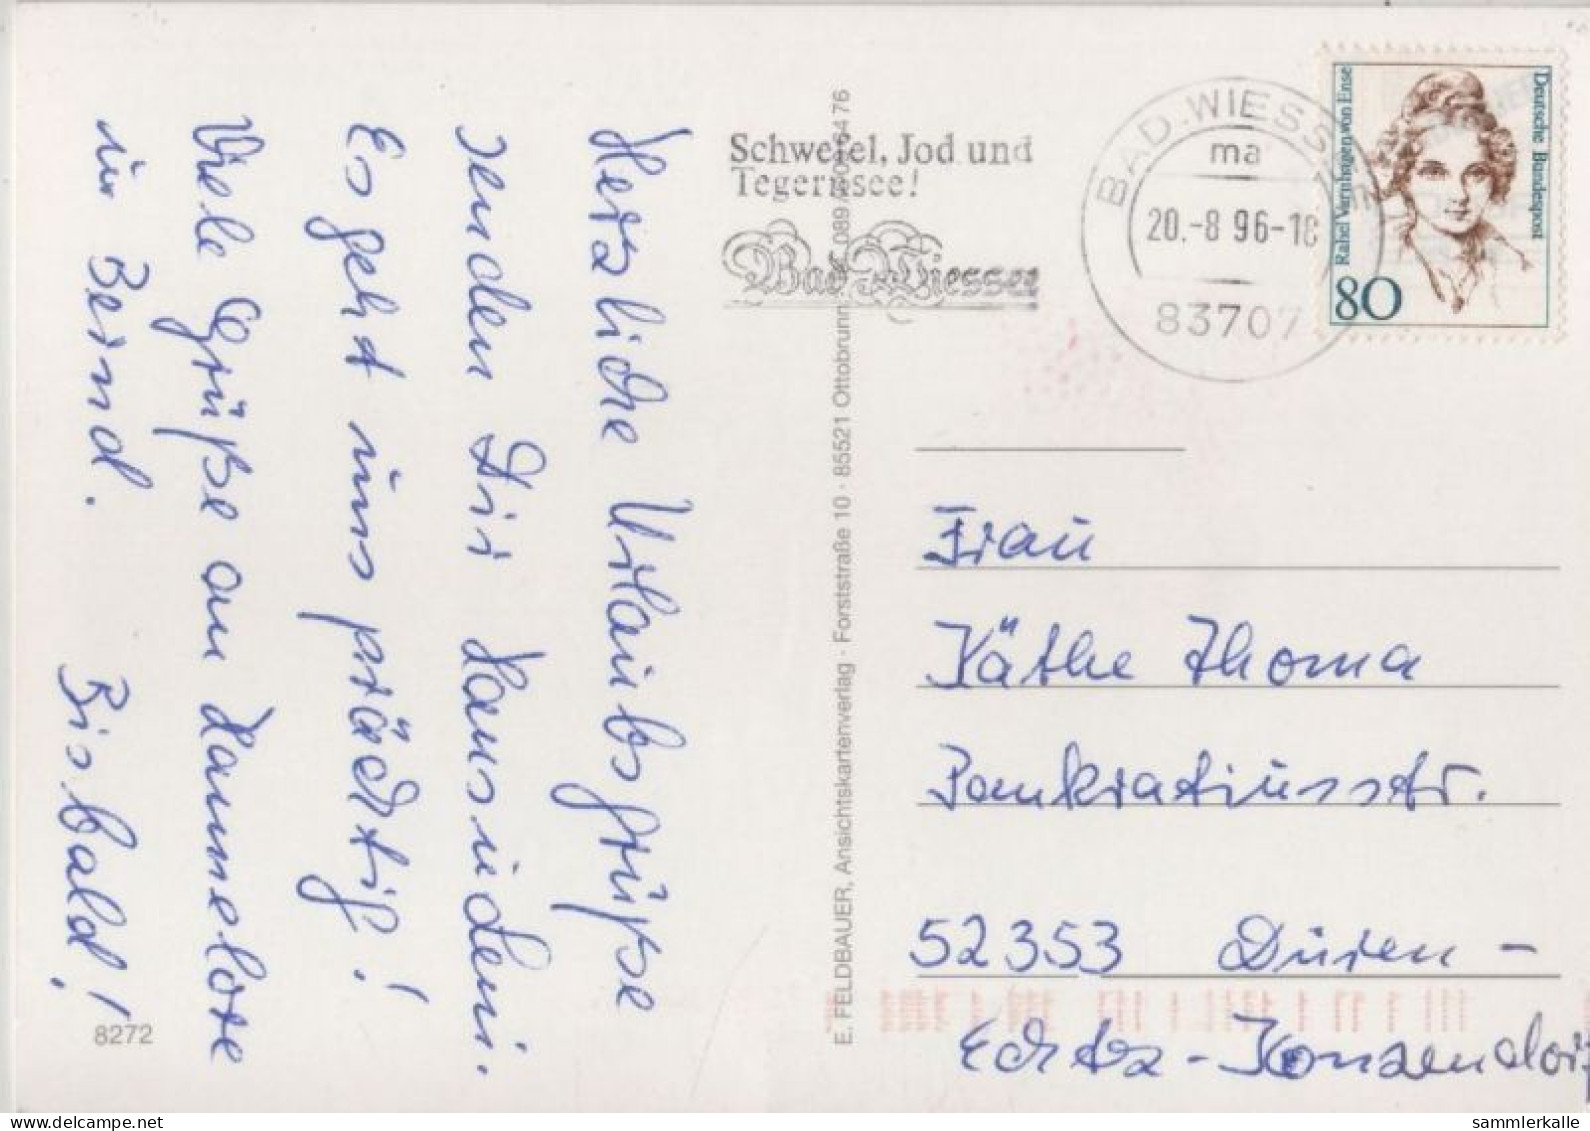 Herzliche Urlaubsgrüße
senden Dir Hans u. Leni.
Es geht uns prächtig!
Viele Grüße an Hannelore
u. Bernd. Bis bald!
8272
E. FELDBAUER, Ansichtskartenverlag · Forststraße 10 · 85521 Ottobrunn
Schwefel, Jod und
Tegernsee!
Bad Wiessee
BAD WIESSEE
ma
20.-8 96-18
83707
Deutsche Bundespost
Rahel Varnhagen von Ense
80
Frau
Käthe Thoma
Pankratiusstr.
52353 Düren -
Echtz - Konzendorf
sammlerkalle